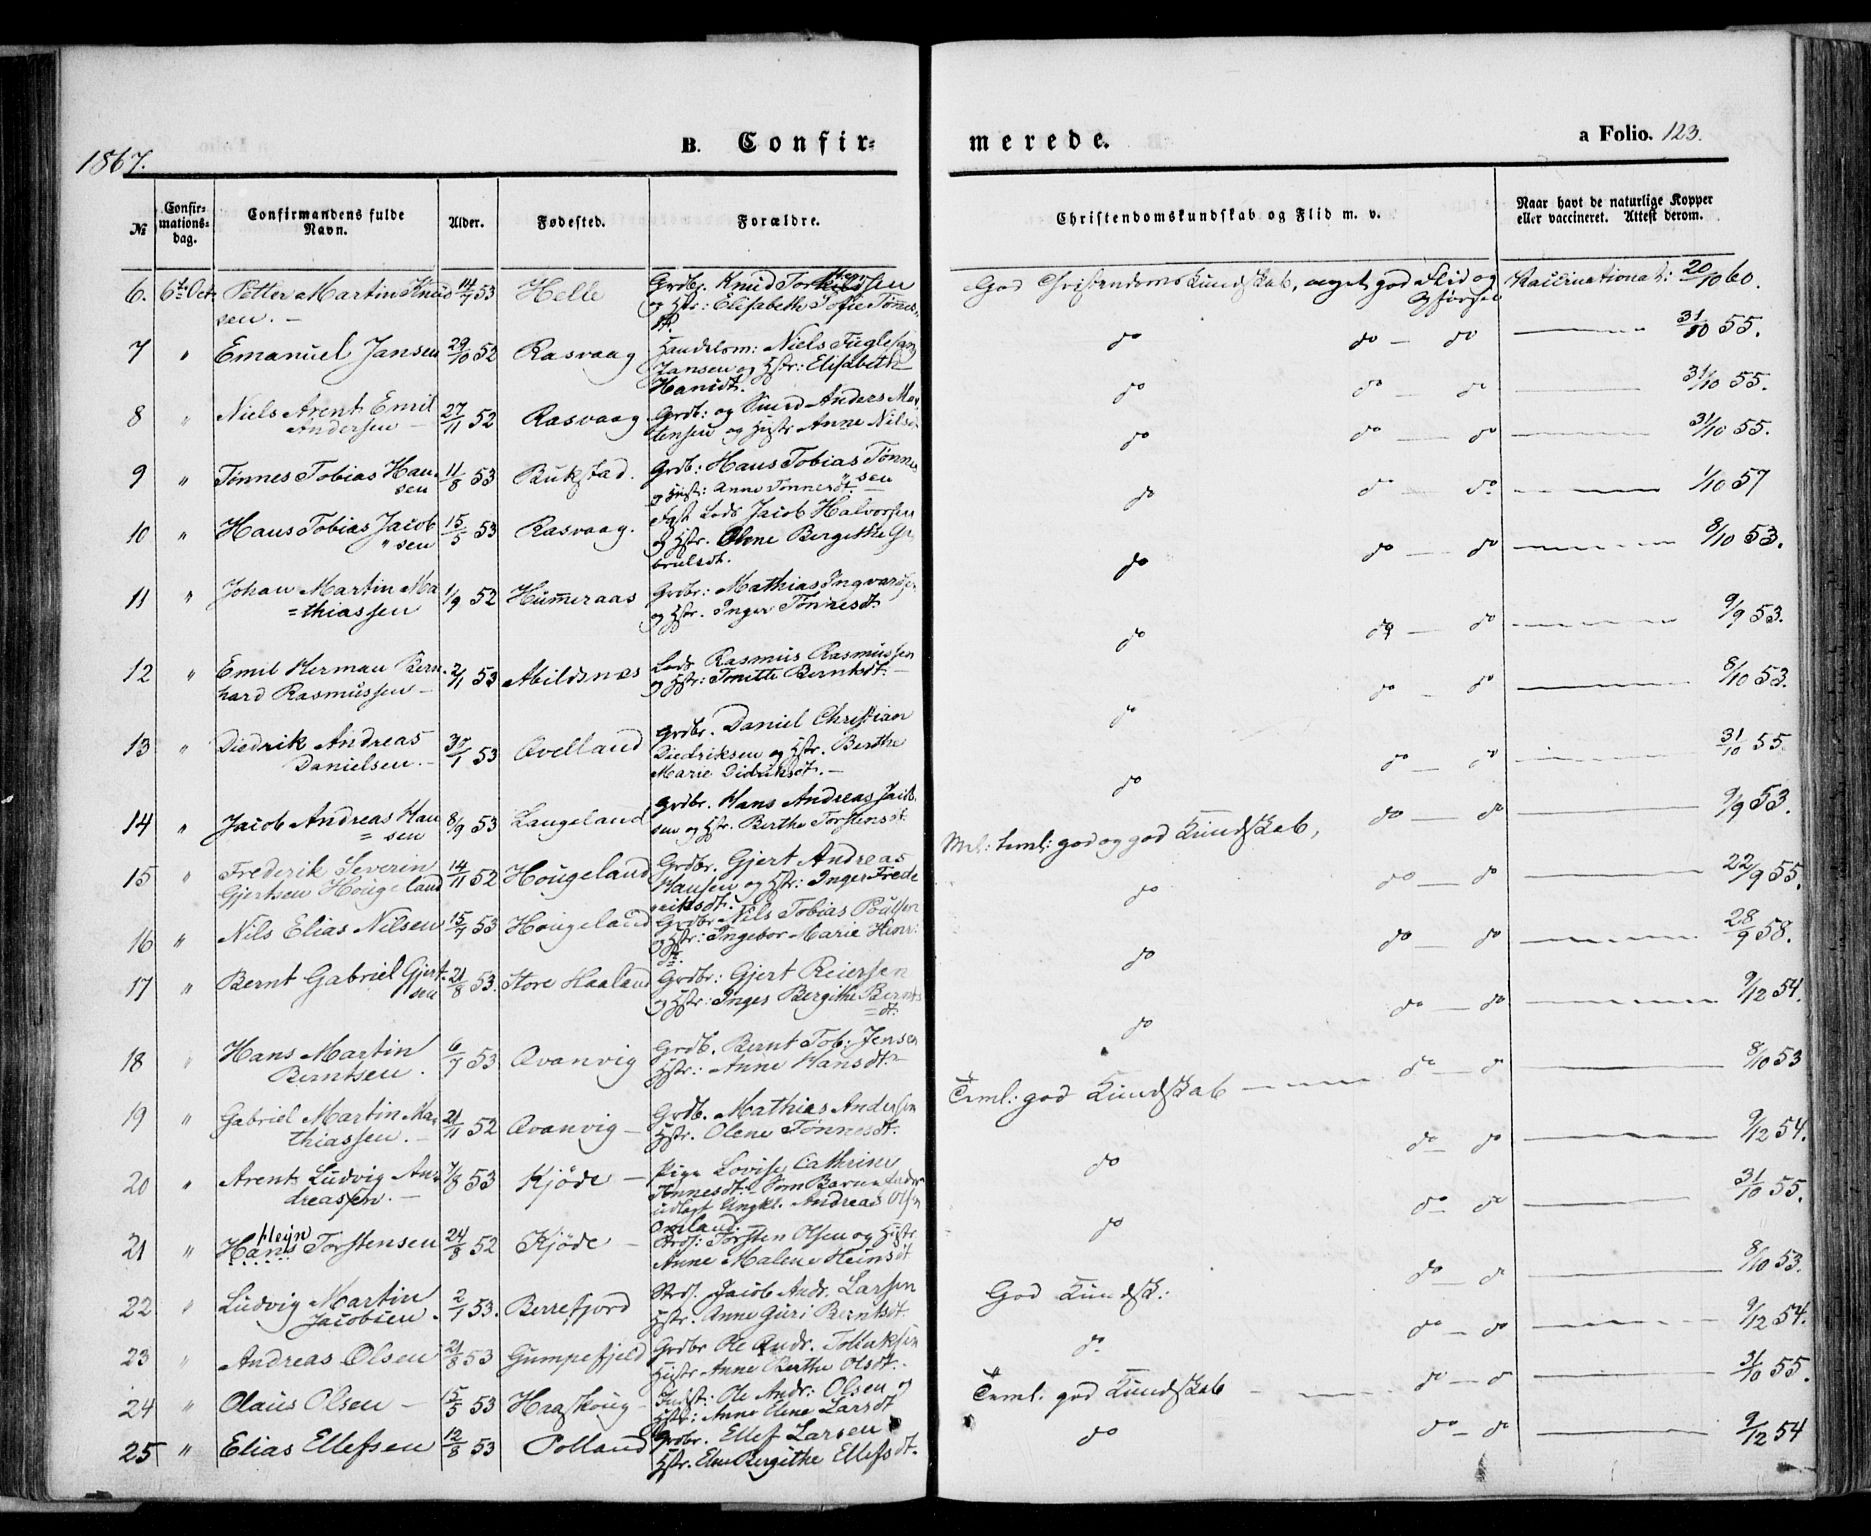 1867.
B. Confir-
merede.
a Folio. 123.
№
Confir-
mations-
dag.
Confirmandens fulde
Navn.
Alder.
Fødested.
Forældre.
Christendomskundskab og Flid m. v.
Naar havt de naturlige Kopper
eller vaccineret. Attest derom.
6. 6te Oct. Petter Martin Knud 14/7 53 Helle Grdbr. Knud
sen. — og Hstr: Elisabeth Sofie Tønnes
dt.
God Christendomskundskab, meget god Flid og Vaccinationat: 20/10 60.
Opførsel
7 " Emanuel Jansen 29/10 52 Rasvaag Handelsm: Niels Fuglesang
Jansen og Hstr: Elisabeth
Hansdt.
do do — do — 31/10 55.
8 " Niels Arent Emil 27/11 52 Rasvaag Grdb: og Smed Anders Mor
Andersen — tensen og Hustr Anne Nilsdt
do do — do — 31/10 55.
9 " Tønnes Tobias Han 11/8 53 Bukstad. Grdb: Hans Tobias Tønnes
sen "sen
og Hustr: Anne Tønnesdt.
do do — do — 31/10 55.
10 " Hans Tobias Jacob 15/5 53 Rasvaag. Fast Lods Jacob Halvorsen
"sen og Hstr. Olene Bergithe Ga
brielsdt.
do do — do — 1/10 57
11 " Johan Martin Ma 1/9 52 Hummeraas Grdbr: Mathias Ingvardsen
=thiassen og Hstr. Inger Tønnesdt.
do do — do — 8/10 53.
12 " Emil Herman Bern- 2/11 53 Abildsnes Lods Rasmus Rasmussen
hard Rasmussen — og Hstr: Tonette Berntsdt. —
do do — do — 9/9 53.
13 " Diedrik Andreas 53 Qvelland Grdbr. Daniel Christian
Danielsen. — Diedriksen og Hstr. Berthe
Marie Didriksdt. —
do do — do — 8/10 53.
14 " Jacob Andreas Han 8/9 53 Langeland Grdbr. Hans Andreas Jacob
=sen sen og Hstr. Berthe Torstensdt.
do do — do — 31/10 55.
15 " Frederik Severin 14/11 52 Hougeland Grdbr. Gjert Andreas
Gjertsen Hougeland Hansen og Hstr: Inger Frede
riksdt.
Mel: teml: god og god Kundskab, do — do — 9/9 53.
16 " Nils Elias Nilsen 15/7 53 Hougeland Grdbr Nils Tobias Poulsen
og Hstr: Ingebor Marie Henr:
dt.
do do — do — 22/9 55.
17 " Bernt Gabriel Gjert- 21/8 53. Store Haaland Grdbr: Gjert Reiersen
sen og Hstr: Inger Bergithe Bernts
=dt.
do do — do — 28/9 58.
18 " Hans Martin 6/7 53 Qvanvig Grdb. Bernt Tob: Jensen
Berntsen. Hstr: Anne Hansdt. —
do do — do — 9/12 54.
19 " Gabriel Martin Ma- 21/11 52 Qvanvig — Grdb. Mathias Andersen
thiassen. — Hstr. Olene Tønnesdt.
Teml: god Kundskab — do — do — 8/10 53
20 " Arent Ludvig An- 7/8 53 Kjøde — Pige Lovise Cathrine
dreassen. — Tønnesdt. Som Barnefader
udlagt Ungkl. Andreas Olsen
Omland.
do do — do — 9/12 54.
Heyn
21 " Hans Torstensen 24/8 52 Kjøde — Strds: Torsten Olsen og Hstr
Anne Malene Heinsdt
do do — do — 31/10 55.
22 " Ludvig Martin 2/7 53. Berrefjord Strds. Jacob Andr. Larsen
Jacobsen. Hstr. Anne Guri Berntsdt.
God Kundsk: do — do — 8/10 53.
23 " Andreas Olsen 21/8 53 Gumpefjeld Grdbr Ole Andr. Tollaksen
Hustr Anne Berthe Olsdt.
do do — do — 9/12 54.
24 " Olaus Olsen — 15/5 53 Haaskoug — Indst: Ole Andr: Olsen og
Hstr: Anne Elene Larsdt
Teml: god Kundskab — do — do — 31/10 55.
25 " Elias Ellefsen 12/8 53 Polland Grdbr. Ellef Larsen
Hstr. Elen Bergithe Ellefsdt.
do do — do — 9/12 54